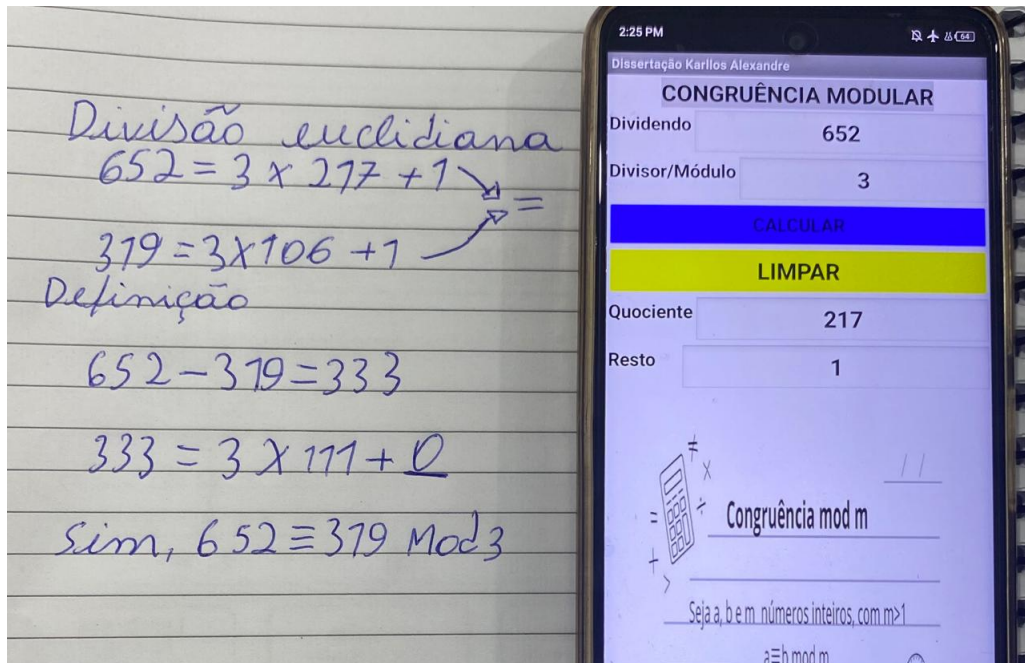 Divisão euclidiana
652 = 3 x 217 + 1
=
319 = 3 x 106 + 1
Definição
652 - 319 = 333
333 = 3 x 111 + 0
Sim, 652 ≡ 319 Mod 3
2:25 PM
64
Dissertação Karllos Alexandre
CONGRUÊNCIA MODULAR
Dividendo 652
Divisor/Módulo 3
CALCULAR
LIMPAR
Quociente 217
Resto 1
≠
x
÷
=
+
>
Congruência mod m
Seja a, b e m números inteiros, com m>1
a≡b mod m